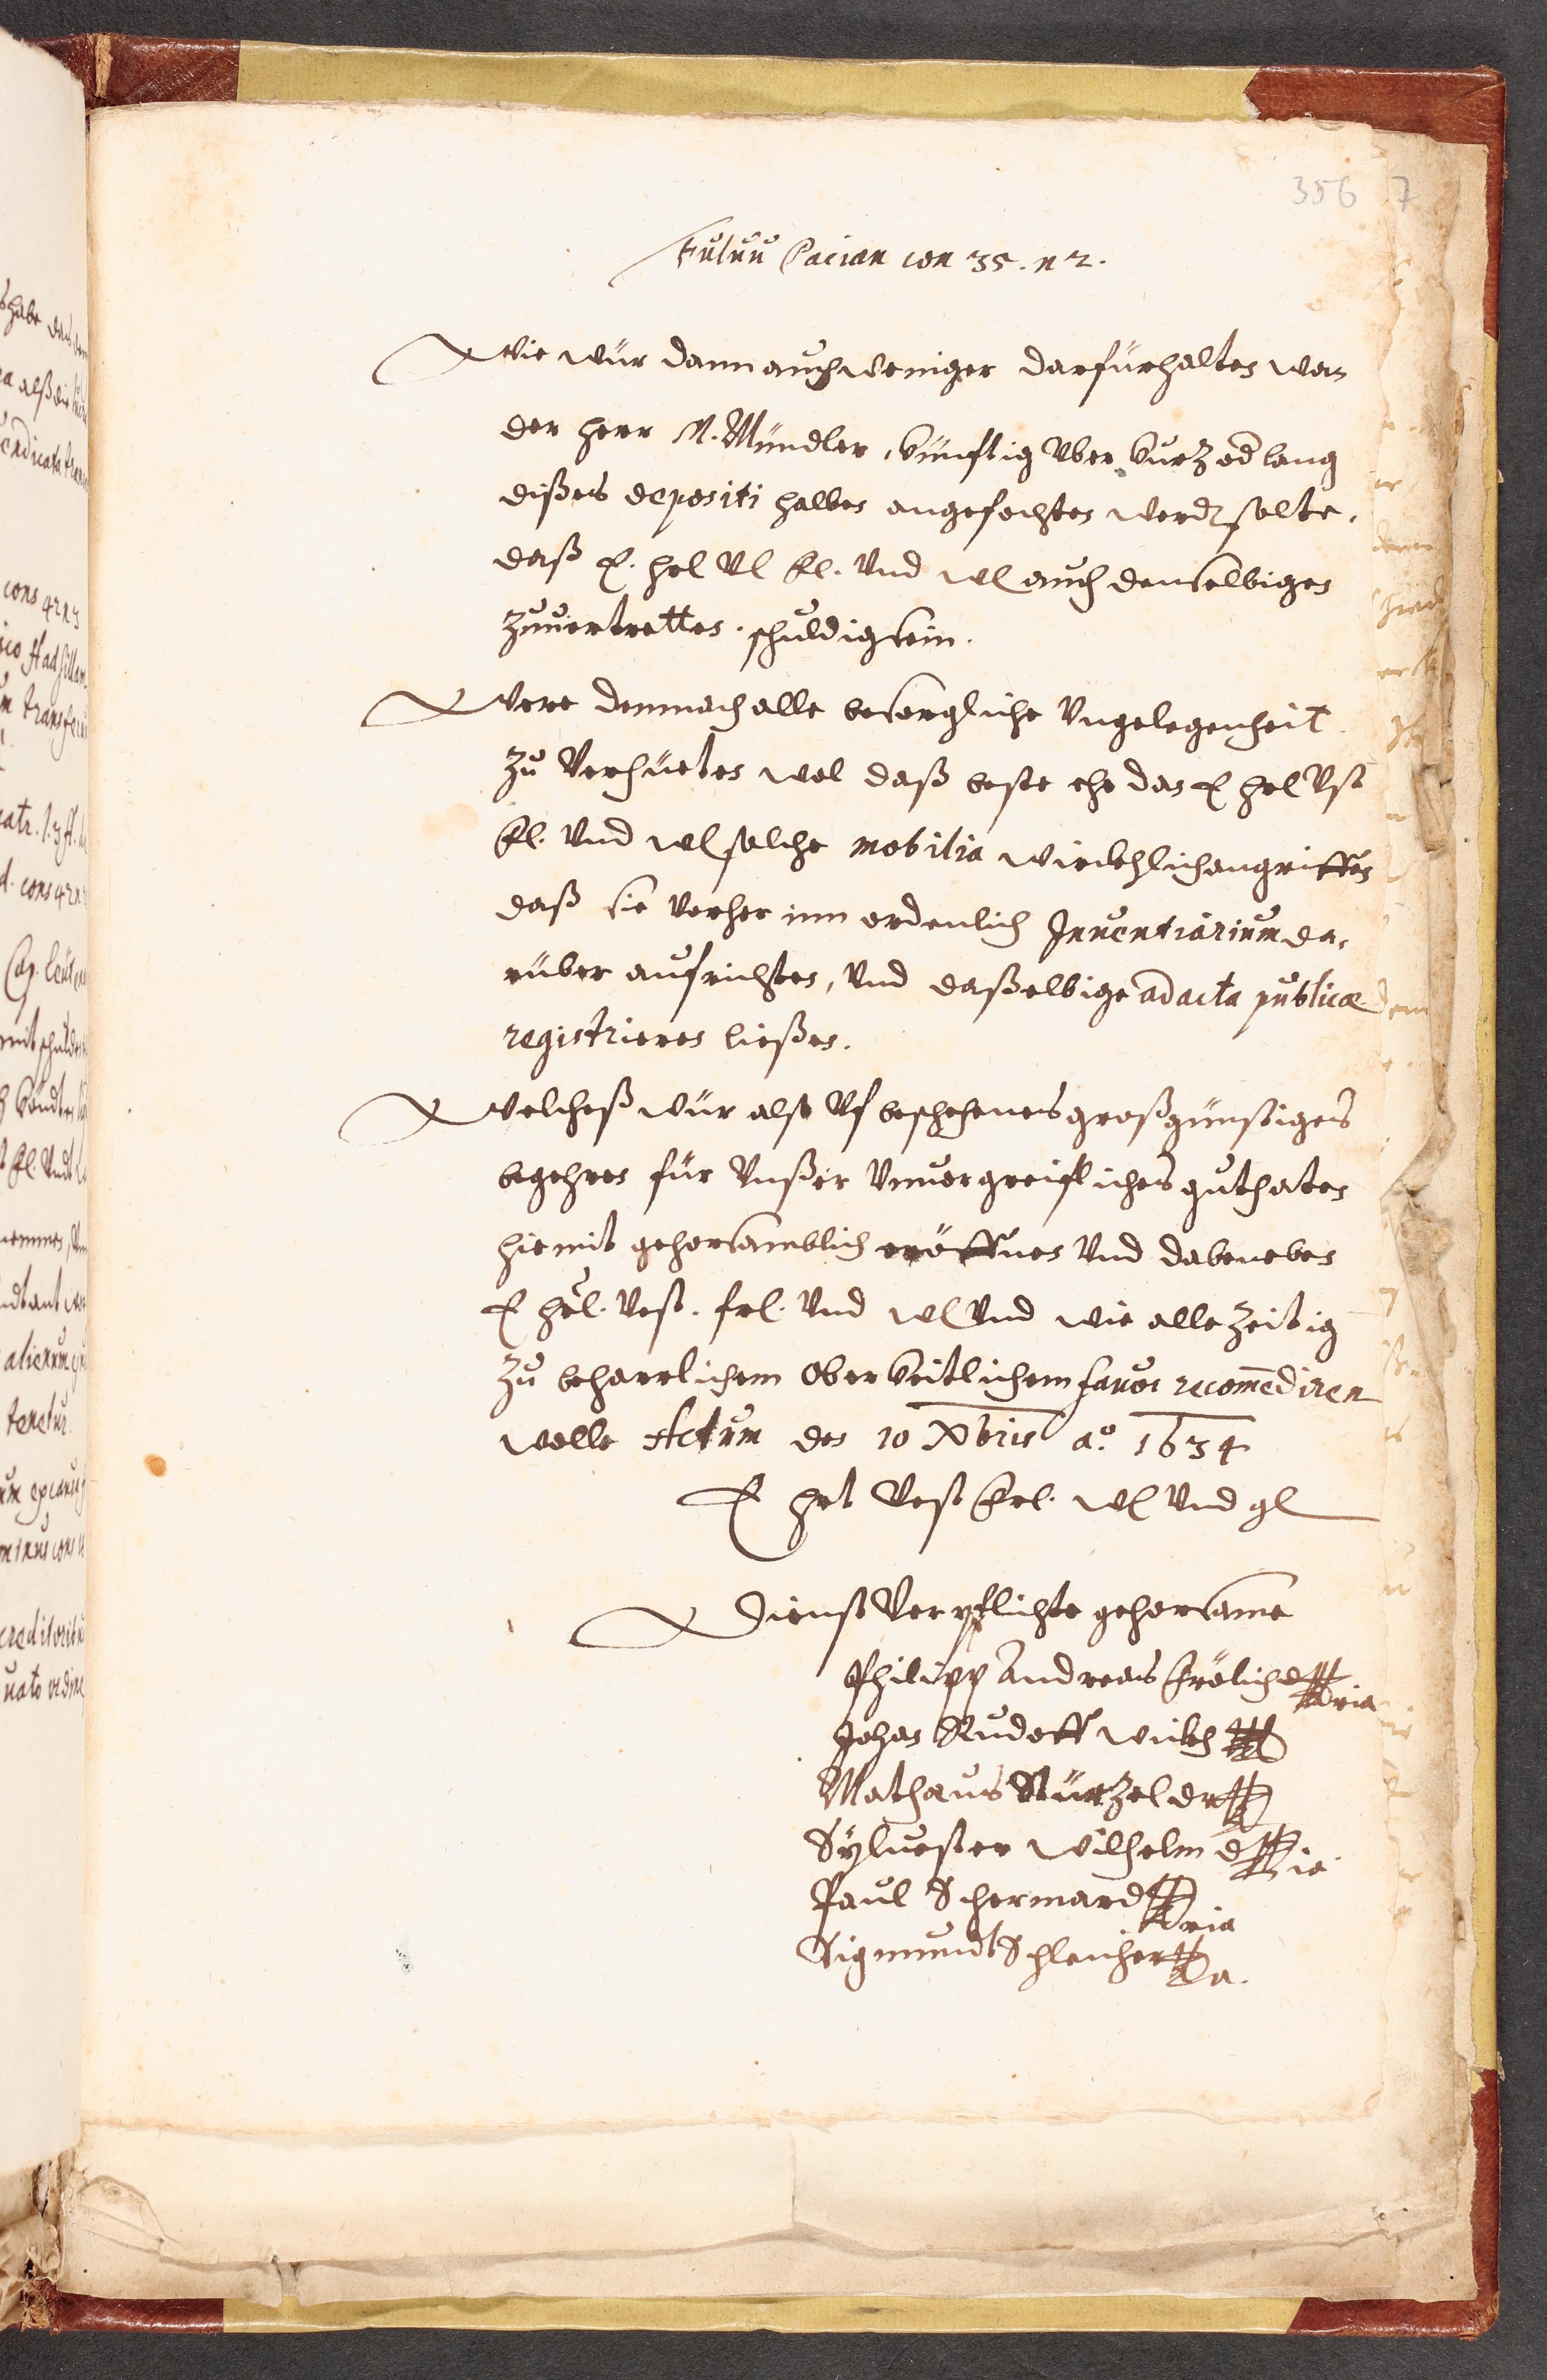 356 7
Fuluu Pacian con 35. n 2.
Wie wür dann auch weniger darfür halten wan
der Herr M. Mündler, künftig vber kurz od lang
dißes depositi halben angefochten werdn solte,
daß E. Hrl Vl Frl. Vnd Wl auch denselbigen
zuuertretten schuldig sein.
Were demnach alle besorgliche Vngelegenheit
zu Verhüeten wol daß beste ehe dan E Hrl Vst
Frl. Vnd Wl solche mobilia würckhlich angriffen
daß sie vorher inn ordenlich Inuentiarium da,
rüber aufrichten, Vnd daßselbige ad acta publica
registrieren ließen.
Welcheß wür also Vf beschehenes großgünstiges
begehren für Vnßer Vnuorgreifliches guthaten
hiemit gehorsamblich eröffnen Vnd dabeneben
E Hrl. Vest. Frl. Vnd Wl Vnd wie alle Zeitig
zu beharrlichem Oberkeitlichem fauor recomēdiren
wolle Actum den 10 Xbris aº. 1634
E Hrt Vest Frl. Wl Vnd gl
Dienst Verpflichte gehorsame
Philipp Andreas Frölich D
Johan Rudolff Wickh
Mathaus Stürzel Dr
Syluester Wilhelm D
Paul Schermar D
Sigmundt Schleicher